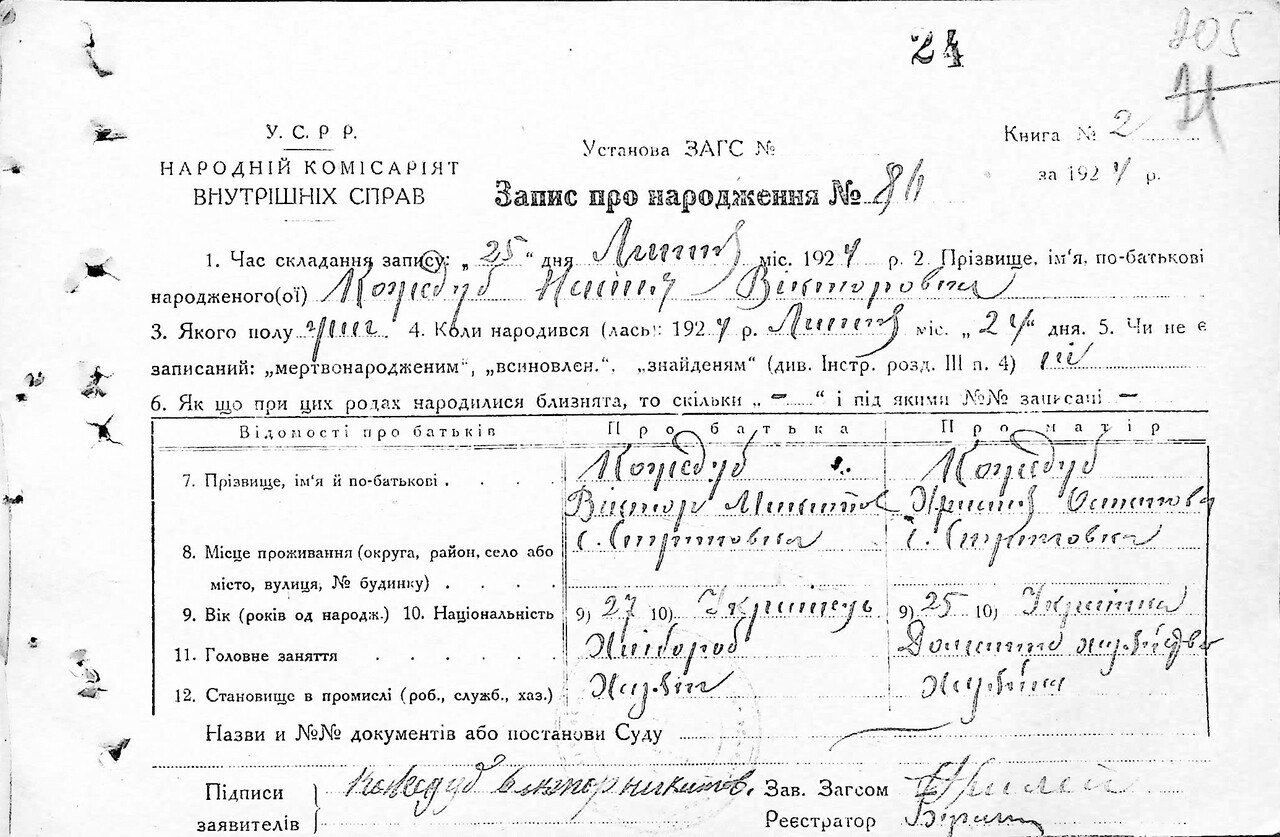 24
205
У. С. Р Р.
НАРОДНІЙ КОМІСАРІЯТ
ВНУТРІШНІХ СПРАВ
Установа ЗАГС №
Книга № 2
за 1924 р.
Запис про народження № 86
1. Час складання запису: „ 25 " дня Липня міс. 1924 р. 2. Прізвище, ім'я, по-батькові
народженого(ої) Кожедуб Вікторовна
3. Якого полу жін 4. Коли народився (лась): 1924 р. Липня міс. „ 24 " дня. 5. Чи не є
записаний: „мертвонародженим", „всиновлен.". „знайденям" (див. Інстр. розд. III п. 4) ні
6. Як що при цих родах народилися близнята, то скільки „ – " і під якими №№ записані –
Відомості про батьків Про батька Про матір
7. Прізвище, ім'я й по-батькові . . . . Кожедуб Кожедуб
Віктор Микитов Христя Остапова
8. Місце проживання (округа, район, село або с. с.
місто, вулиця, № будинку) . . . .
9. Вік (років од народж.) 10. Національність 9) 27 10) Українець 9) 25 10) Українка
11. Головне заняття . . . . . . Хлібороб Домашнє хазяйство
12. Становище в промислі (роб., служб., хаз.) Хазяїн Хазяйка
Назви и №№ документів або постанови Суду
Підписи Кожедуб Виктор никитов. Зав. Загсом
заявителів Реєстратор